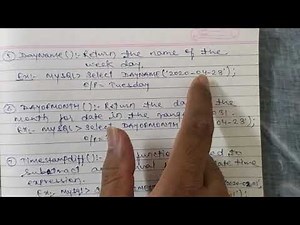 5) DAYNAME() :- Return the name of the
week day.
Ex:- MySQL> Select DAYNAME('2020-04-28');
O/P = Tuesday
6) DAYOFMONTH() :- Return the da
month for date in the range
Ex:- MySQL> Select DAYOFMONTH 04-28');
O/P
7) Timestampdiff() :- function used to
subtract time
expression.
Ex:- MySQL>